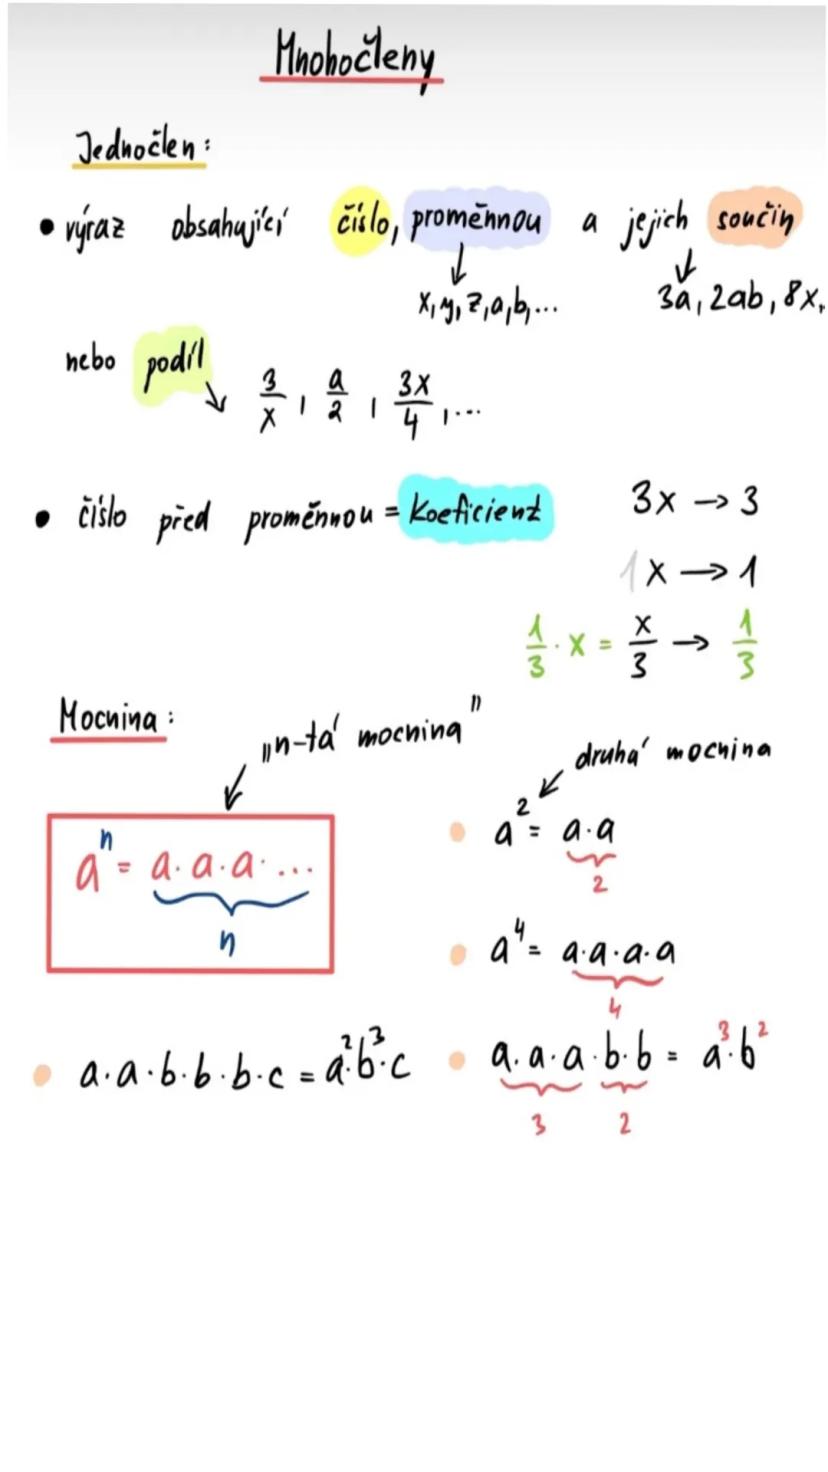 Mnohočleny
Jednočlen:
• výraz obsahující číslo, proměnnou a jejich součin
x, y, z, a, b, ...
3a, 2ab, 8x,
nebo podíl
3/x, a/2, 3x/4, ...
• číslo před proměnnou = koeficient
3x → 3
1x → 1
1/3 · x = x/3 → 1/3
Mocnina:
„n-tá mocnina"
aⁿ = a·a·a· ...
n
druhá mocnina
a² = a·a
2
a⁴ = a·a·a·a
4
a·a·b·b·b·c = a²·b³·c
a·a·a·b·b = a³·b²
3 2